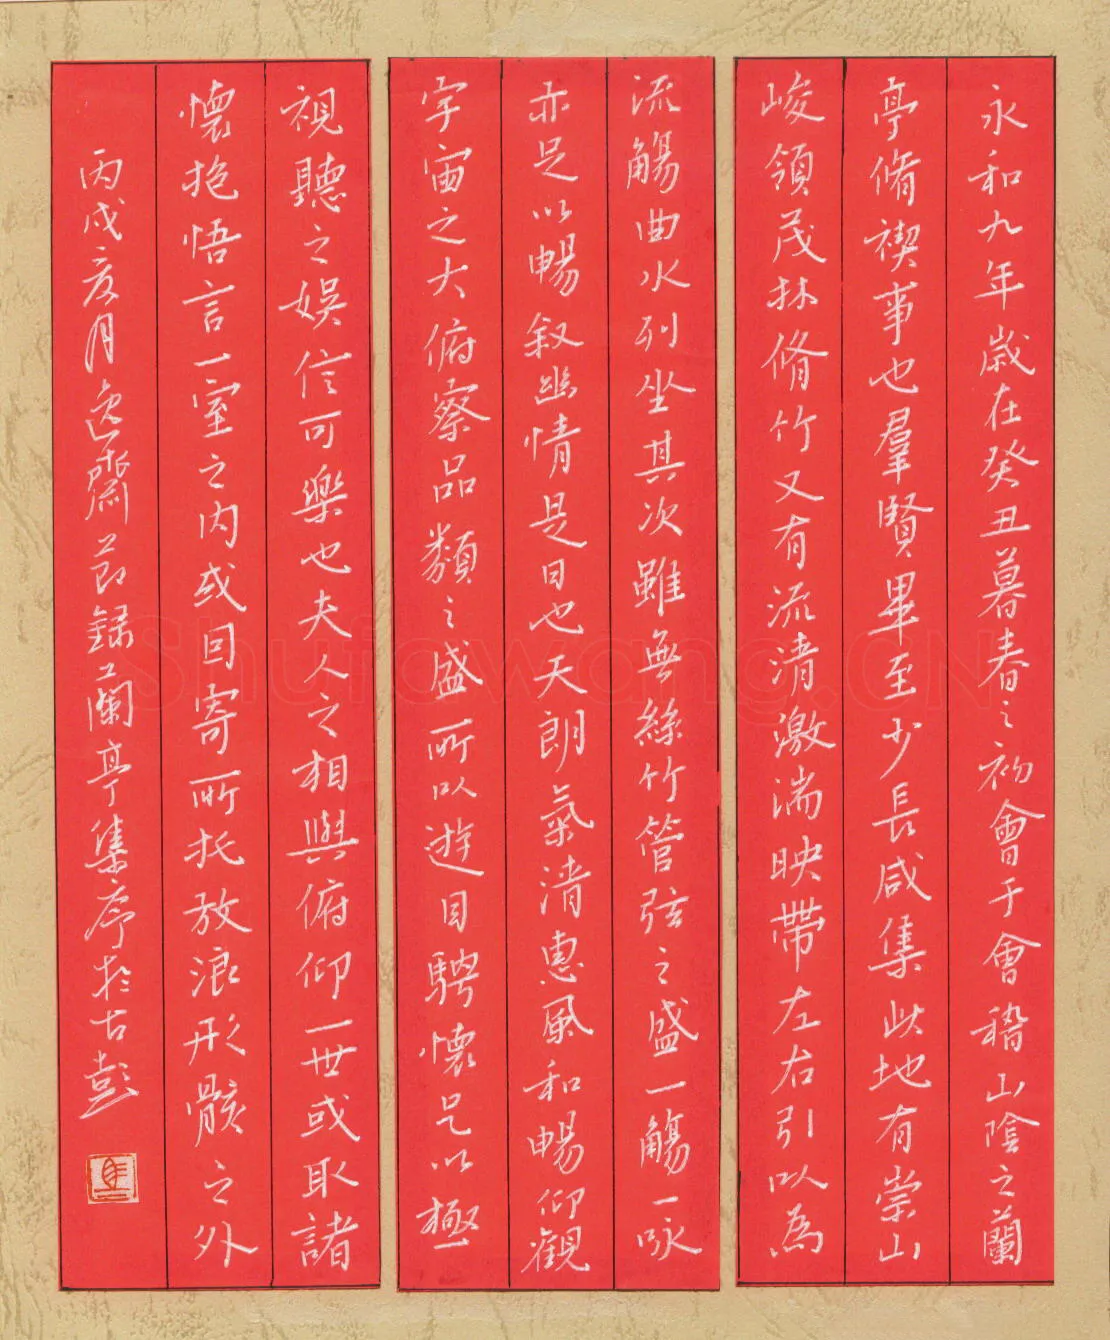 永和九年歲在癸丑暮春之初會于會稽山陰之蘭
亭脩禊事也羣賢畢至少長咸集此地有崇山
峻領茂林脩竹又有流清激湍映帶左右引以為
流觴曲水列坐其次雖無絲竹管弦之盛一觴一咏
亦足以暢叙幽情是日也天朗氣清惠風和暢仰觀
宇宙之大俯察品類之盛所以遊目騁懷足以極
視聽之娛信可樂也夫人之相與俯仰一世或取諸
懷抱悟言一室之內或回寄所托放浪形骸之外
丙戌亥月逸齋節録蘭亭集序於古彭
Shufawang.CN